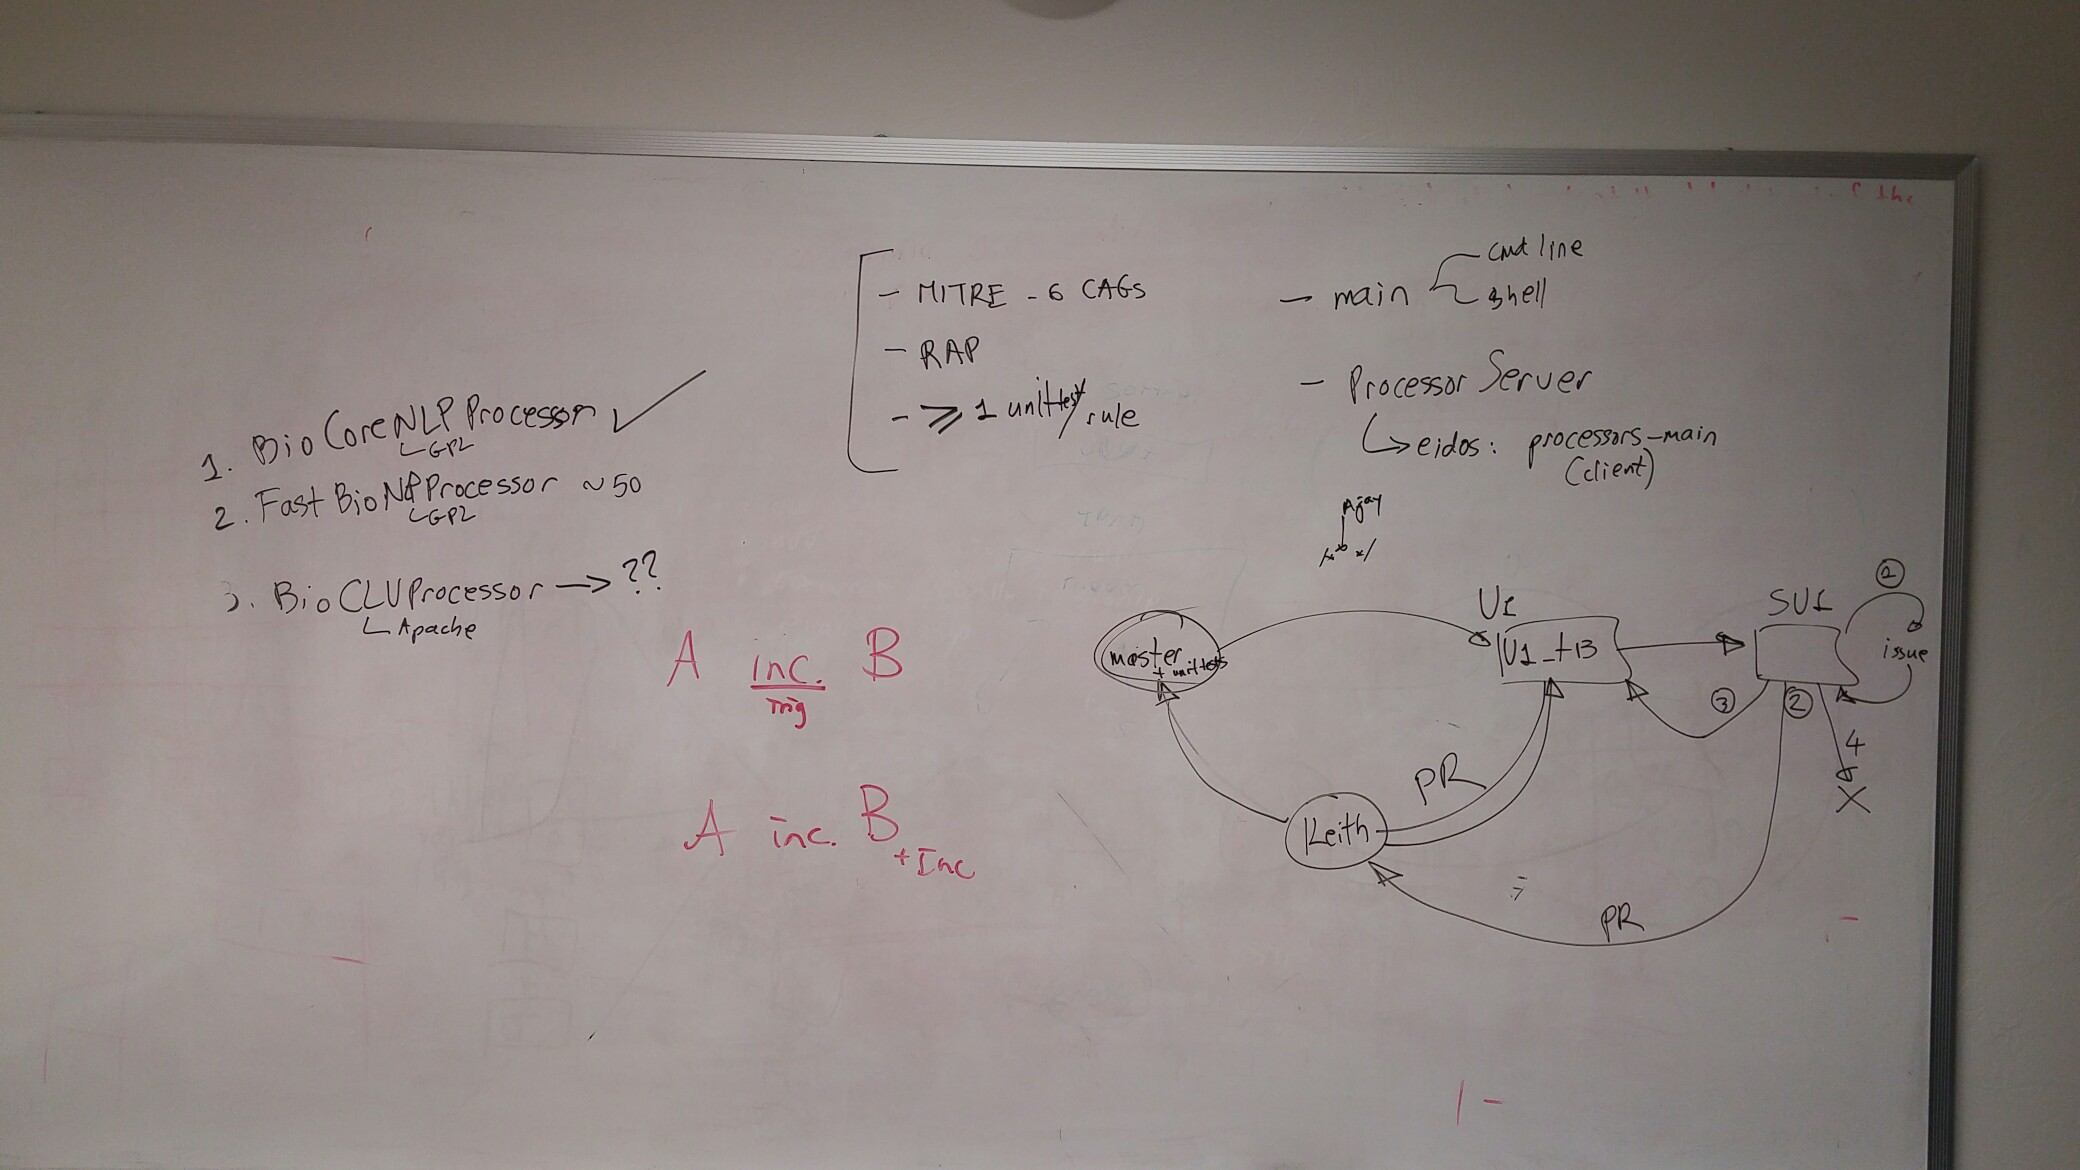 1. BioCoreNLPProcessor
GPL
2. FastBioNLPProcessor ~50
GPL
3. BioCLUProcessor → ??
Apache
- MITRE - 6 CAGS
- RAP
- ⩾ 1 unit test / rule
- main
cmd line
shell
- Processor Server
↳ eidos: processors-main
(client)
Ajay
A inc. B
A inc. B
+ Inc
master
+ unit tests
U1
SU1
issue
2
3
4
X
Keith
PR
PR